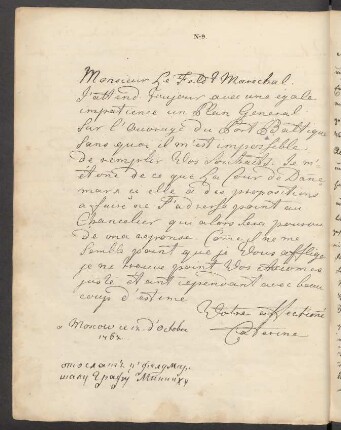 N 9.
Monsieur Le Feld Marechal.
J'attend toujour avec une egale
impatience un Plan General
Sur l'Ouvrage du Port Baltique
Sans quoi il m'est impossible
de remplir Vos Souhaits. Je m'
étone de ce que La Cour de Dane
mark si elle a des propositions
a faire ne s'adresse point au
Chancelier qui alors Sera pourvu
de ma reponse. Comme il ne me
Semble point que je Vous afflige
je ne trouve point Vos
juste étant cependant avec beau
coup d'estime
Votre affectioné
Caterine
a Moscou ce 12 d'Octobre
1762
отослать к фелдмар
шалу Графу Миниху